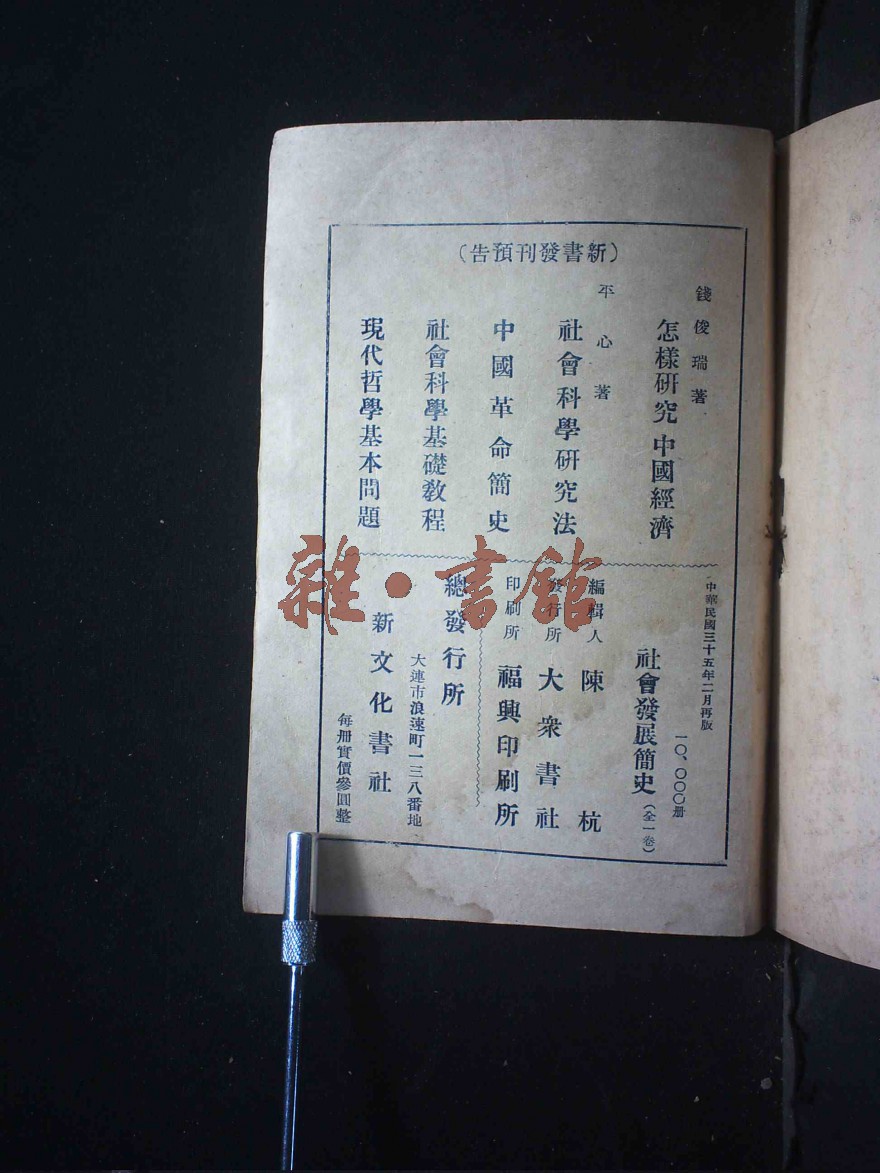 (新書發刊預告)
錢俊瑞著
怎樣研究中國經濟
平心著
社會科學研究法
中國革命簡史
社會科學基礎教程
現代哲學基本問題
中華民國三十五年二月再版
一〇、〇〇〇册
社會發展簡史(全一卷)
編輯人 陳 杭
發行所 大衆書社
印刷所 福興印刷所
總發行所
大連市浪速町一三八番地
新文化書社
每册實價參圓整
雜·書館